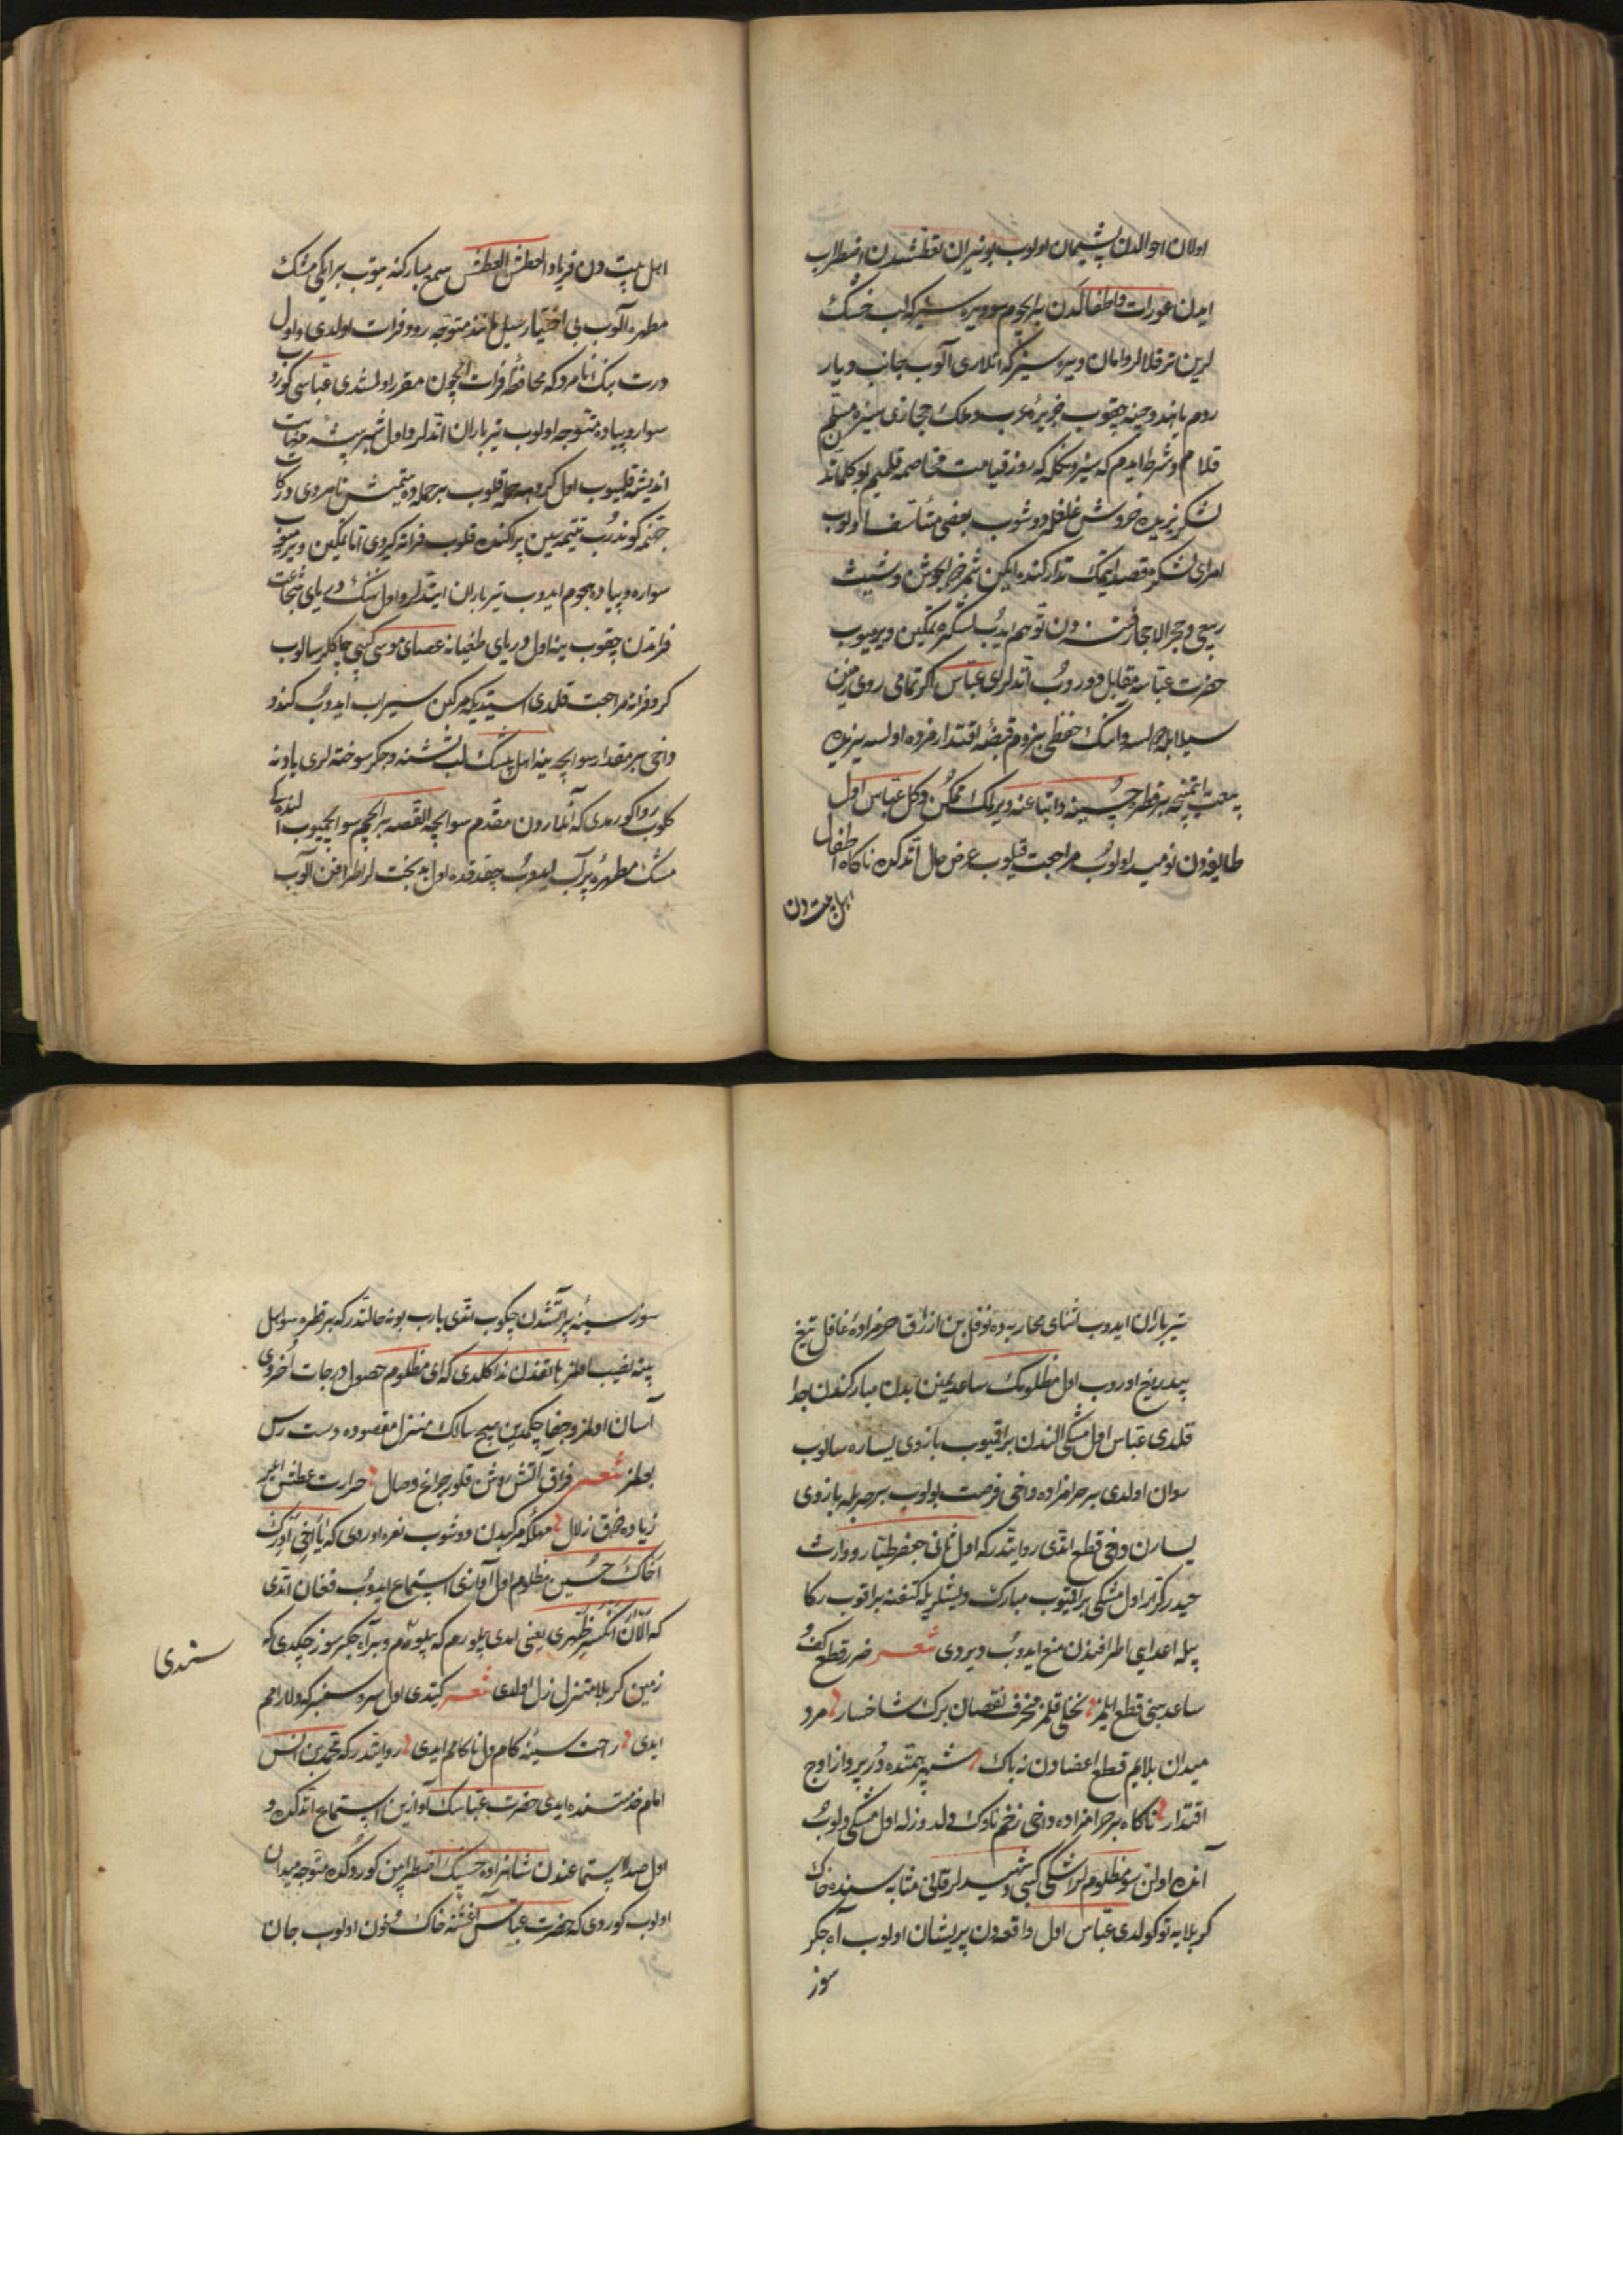 اولان احوالدن پشیمان اولوب بو نیران تعطشدن اضطراب
ایدن عورات و اطفالدن بر ایچوم سو ویره سیز که لب خشک
لرین تر قلالر و امان ویره سیز که انلاری آلوب جانب دیار
روم یا هند و چینه چیقوب جزیرهٔ عرب و ملک حجازی سیزه مسلم
قلام و شرط ایدم که سیزوکله روز قیامت مخاصمه قلمیم بو کلماتدن
لشکر یزیده خروش و غلغل دوشوب بعضی متأسف اولوب
امرای لشکره قصد ایتمک تدارکنده ایکن شمر ذی الجوشن و شیث
ربیعی و حجر الاحجار فتنه دن توهم ایدوب لشکره تمکین ویرمیوب
حضرت عباسه مقابل دوروب اتدلر ای عباس اگر تمامی روی زمین
سیلابله طولسه و انک حفظی بیزوم قبضهٔ اقتدارمزده اولسه یزیده
بیعت ایتمینجه بر قطره حسینه و اتباعنه ویرمک ممکن دکل عباس اول
طایفه دن نومید اولوب مراجعت قیلوب عرض حال اتدکده ناکاه اطفال
اهل بیت دن
اهل بیت دن فریاد العطش العطش سمع مبارکنه یتوب بر ایکی مشک
مطهره آلوب بی اختیار سیل مانند متوجه رود فرات اولدی و اول
درت بیک نامرد که محافظهٔ فرات ایچون مقرر اولمشدی عباسی کوروب
سوار و پیاده متوجه اولوب تیر باران اتدلر و اول شیر بیشهٔ مهابت
اندیشه قلمیوب اول کروهه حمله قلوب بر حمله ده یتمیش نامردی درکات
جهنمه کوندروب تتمه سین پراکنده قلوب فراته کیردی اما تمکین ویرمیوب
سواره و پیاده هجوم ایدوب تیر باران ایتدلر و اول نهنک دریای شجاعت
فراتدن چقوب ینه اول دریای طغیانه عصای موسی کبی چاکلر سالوب
کروفرانه مراجعت قلدی استدیکه مرکبن سیراب ایدوب کندو
داخی بر مقدار سو ایچه ینه اهل بیتک لب تشنه و جکر سوخته لری یادنه
کلوب روا کورمدی که آنلاردن مقدم سو ایچه القصه بر ایچیم سو ایچمیوب ایکی
مشک مطهره پر آب ایدوب چقدقده اول بدبخت لر اطرافن آلوب
تیرباران ایدوب اثنای محاربه ده نوفل بن ازرق حرامزادهٔ غافل تیغ
بیدریغ اوروب اول مظلومک ساعد یمینن بدن مبارکندن جدا
قلدی عباس اول مشکی الندن براقمیوب بازوی یساره سالوب
روان اولدی بر حرامزاده داخی فرصت بولوب بر ضربله بازوی
یسارن داخی قطع اتدی روایتدر که اول ثانی جعفر طیار و وارث
حیدر کرار اول مشکی براقمیوب مبارک دیشلریله کتفنه براقوب رکا
بیله اعدایی اطرافندن منع ایدوب دیردی شعر ضرر قطع کف
ساعد بنی قطع ایلمز نخلی قلمز منحرف نقصان برک شاخسار مرد
میدان بلایم قطع اعضادن نه باک شهپر همتده در پرواز اوج
اقتدار ناکاه بر حرامزاده داخی زخم ناوک دلدوزله اول مشکی دلوب
آنده اولن سو مظلوملر اشکی کبی و شهیدلر قانی مثابه سنده خاک
کربلایه توکولدی عباس اول واقعه دن پریشان اولوب آه جکر
سوز
سوز سینهٔ پر آتشدن چکوب اتدی یارب بو نه حالتدر که بر قطره سو اهل
بیته نصیب اولمز هاتفدن ندا کلدی که ای مظلوم حصول درجات اخروی
آسان اولمز و جفا چکمدین هیچ سالک منزل مقصوده دست رس
بولمز شعر فراق آتش روشن قلور چراغ وصال حرارت عطش ایلر
زیاده ذوق زلال مهلکه مرکبدن دوشوب نعره اوردی که یا اخی ادرک
اخاک حسین مظلوم اول آوازی استماع ایدوب فغان اتدی
که الآن انکسر ظهری یعنی ایمدی بیلورم که بیلوم و بر آه جکر سوز چکدی که
زمین کربلا متزلزل اولدی شعر کیتدی اول سرو سهی که دلارامم
سندی
ایدی راحت سینهٔ کام دل ناکامم ایدی روایتدر که محمد بن انس
امام خدمتنده ایدی حضرت عباسک آوازین استماع اتدکده و
اول صدا استماعندن شاهزاده حسینک اضطرابین کوردکده متوجه میدان
اولوب کوردی که حضرت عباس آغشتهٔ خاک و خون اولوب جان